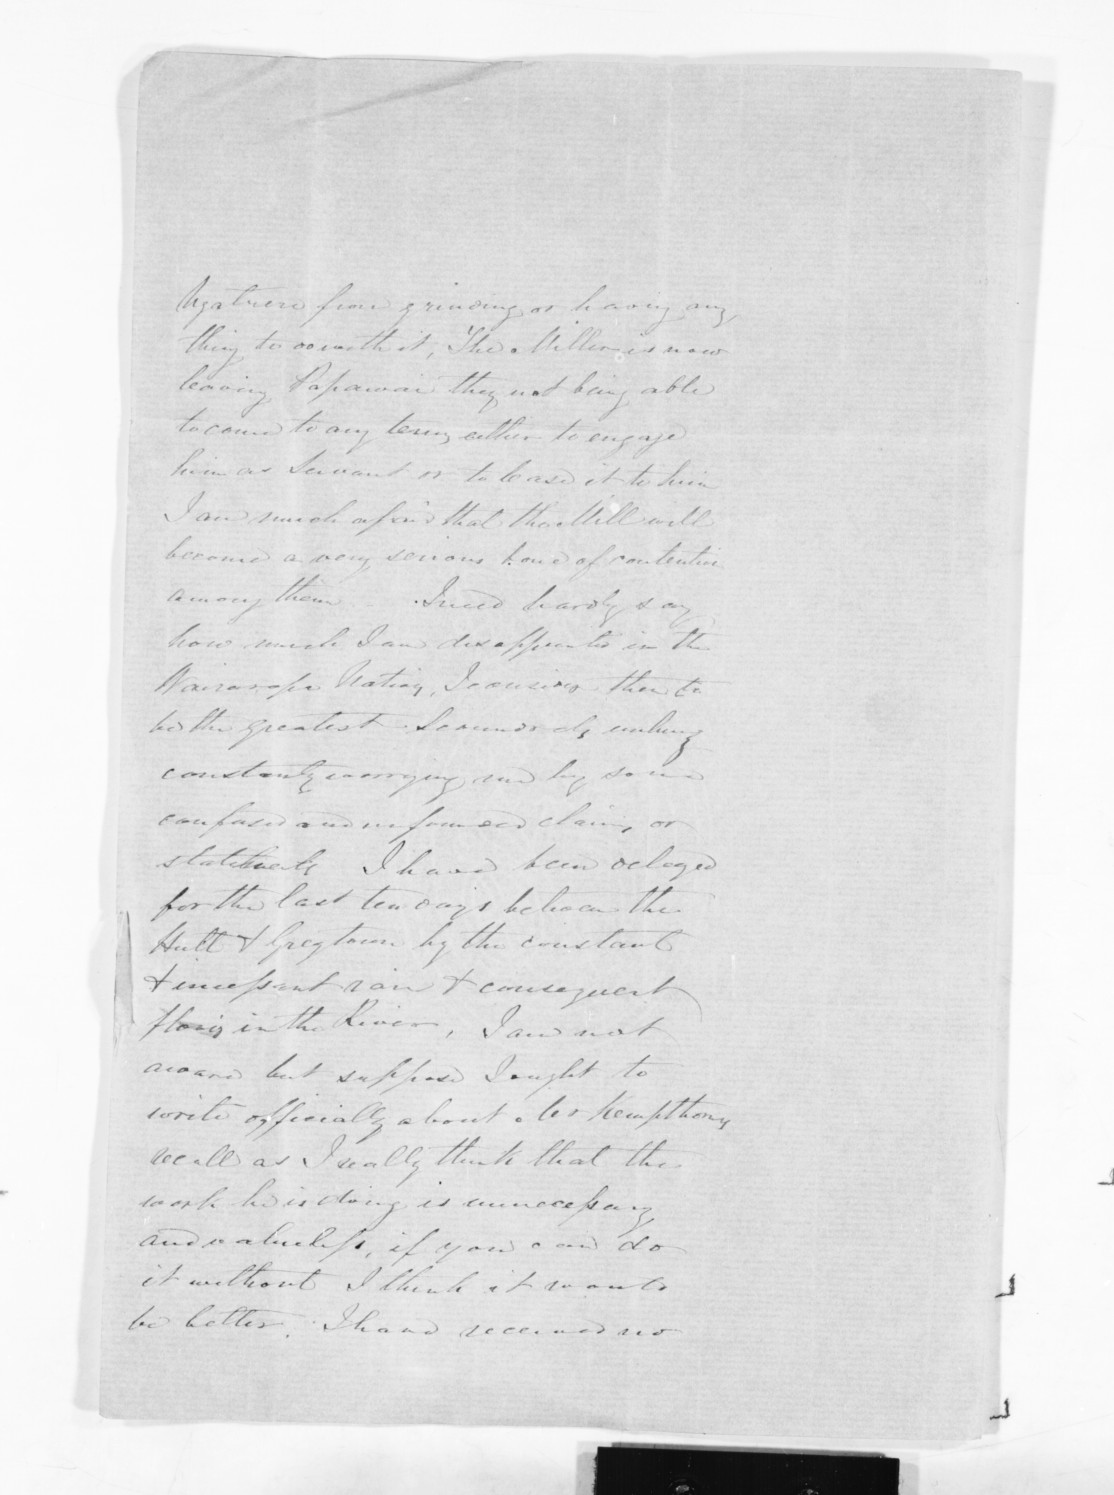 Ngatuere from grinding or having any
thing to do with it, The Miller is now
leaving Papawai they not being able
to come to any terms either to engage
him as Servant or to lease it to him
I am much afraid that the Mill will
become a very serious bone of contention
among them I need hardly say
how much I am disappointed in the
Wairarapa Natives, I consider them to
be the greatest Scoundrels
constantly worrying me by some
confused and unfounded claims or
statements I have been delayed
for the last ten days between the
Hutt & Greytown by the constant
& incessant rain & consequent
floods in the River, I am not
aware but suppose I ought to
write officially about Mr Kempthorne
recall as I really think that the
work he is doing is unnecessary
and valueless, if you can do
it without I think it would
be better. I have received no